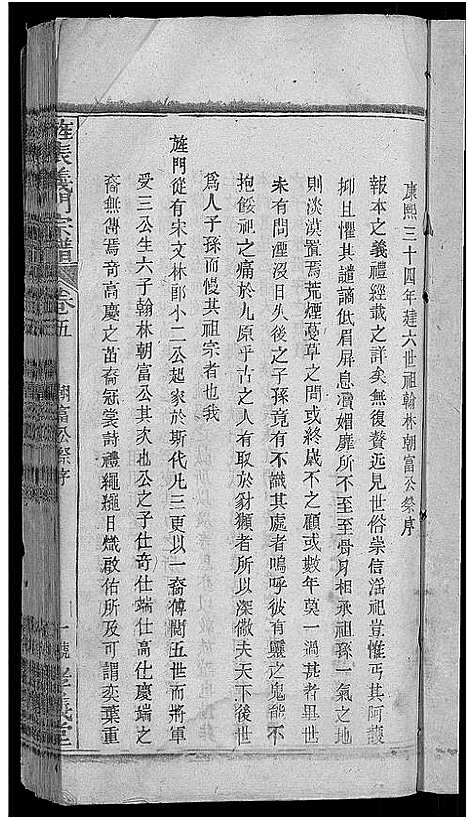 康熙三十四年建六世祖翰林朝富公祭序
報本之義禮經載之詳矣無復贅远見世俗崇信滛祀豈惟丐其阿護
抑且懼其譴謫低眉屏息瀆媚靡所不至至骨月相承祖孫一氣之地
則淡漠置焉荒煙蔓草之間或終歲不之顧或數年莫一澆甚者畢世
未有問湮沒日久後之子孫竟有不識其處者嗚呼彼有靈之鬼能不
抱餒祀之痛於九原乎古之人有取於豺獺者所以深儆夫天下後世
爲人子孫而慢其祖宗者也我
旌門從有宋文林郎小二公起家於斯代凡三更以一裔傳閱五世而將軍
受三公生六子翰林朝富公其次也公之子仕奇仕端仕高仕慶端之
裔無傳焉奇高慶之苗裔冠裳詩禮繩繩日熾啟佑所及可謂奕葉重
旌表義門宗譜 卷之五 朝富公祭序 一 號 孝義堂